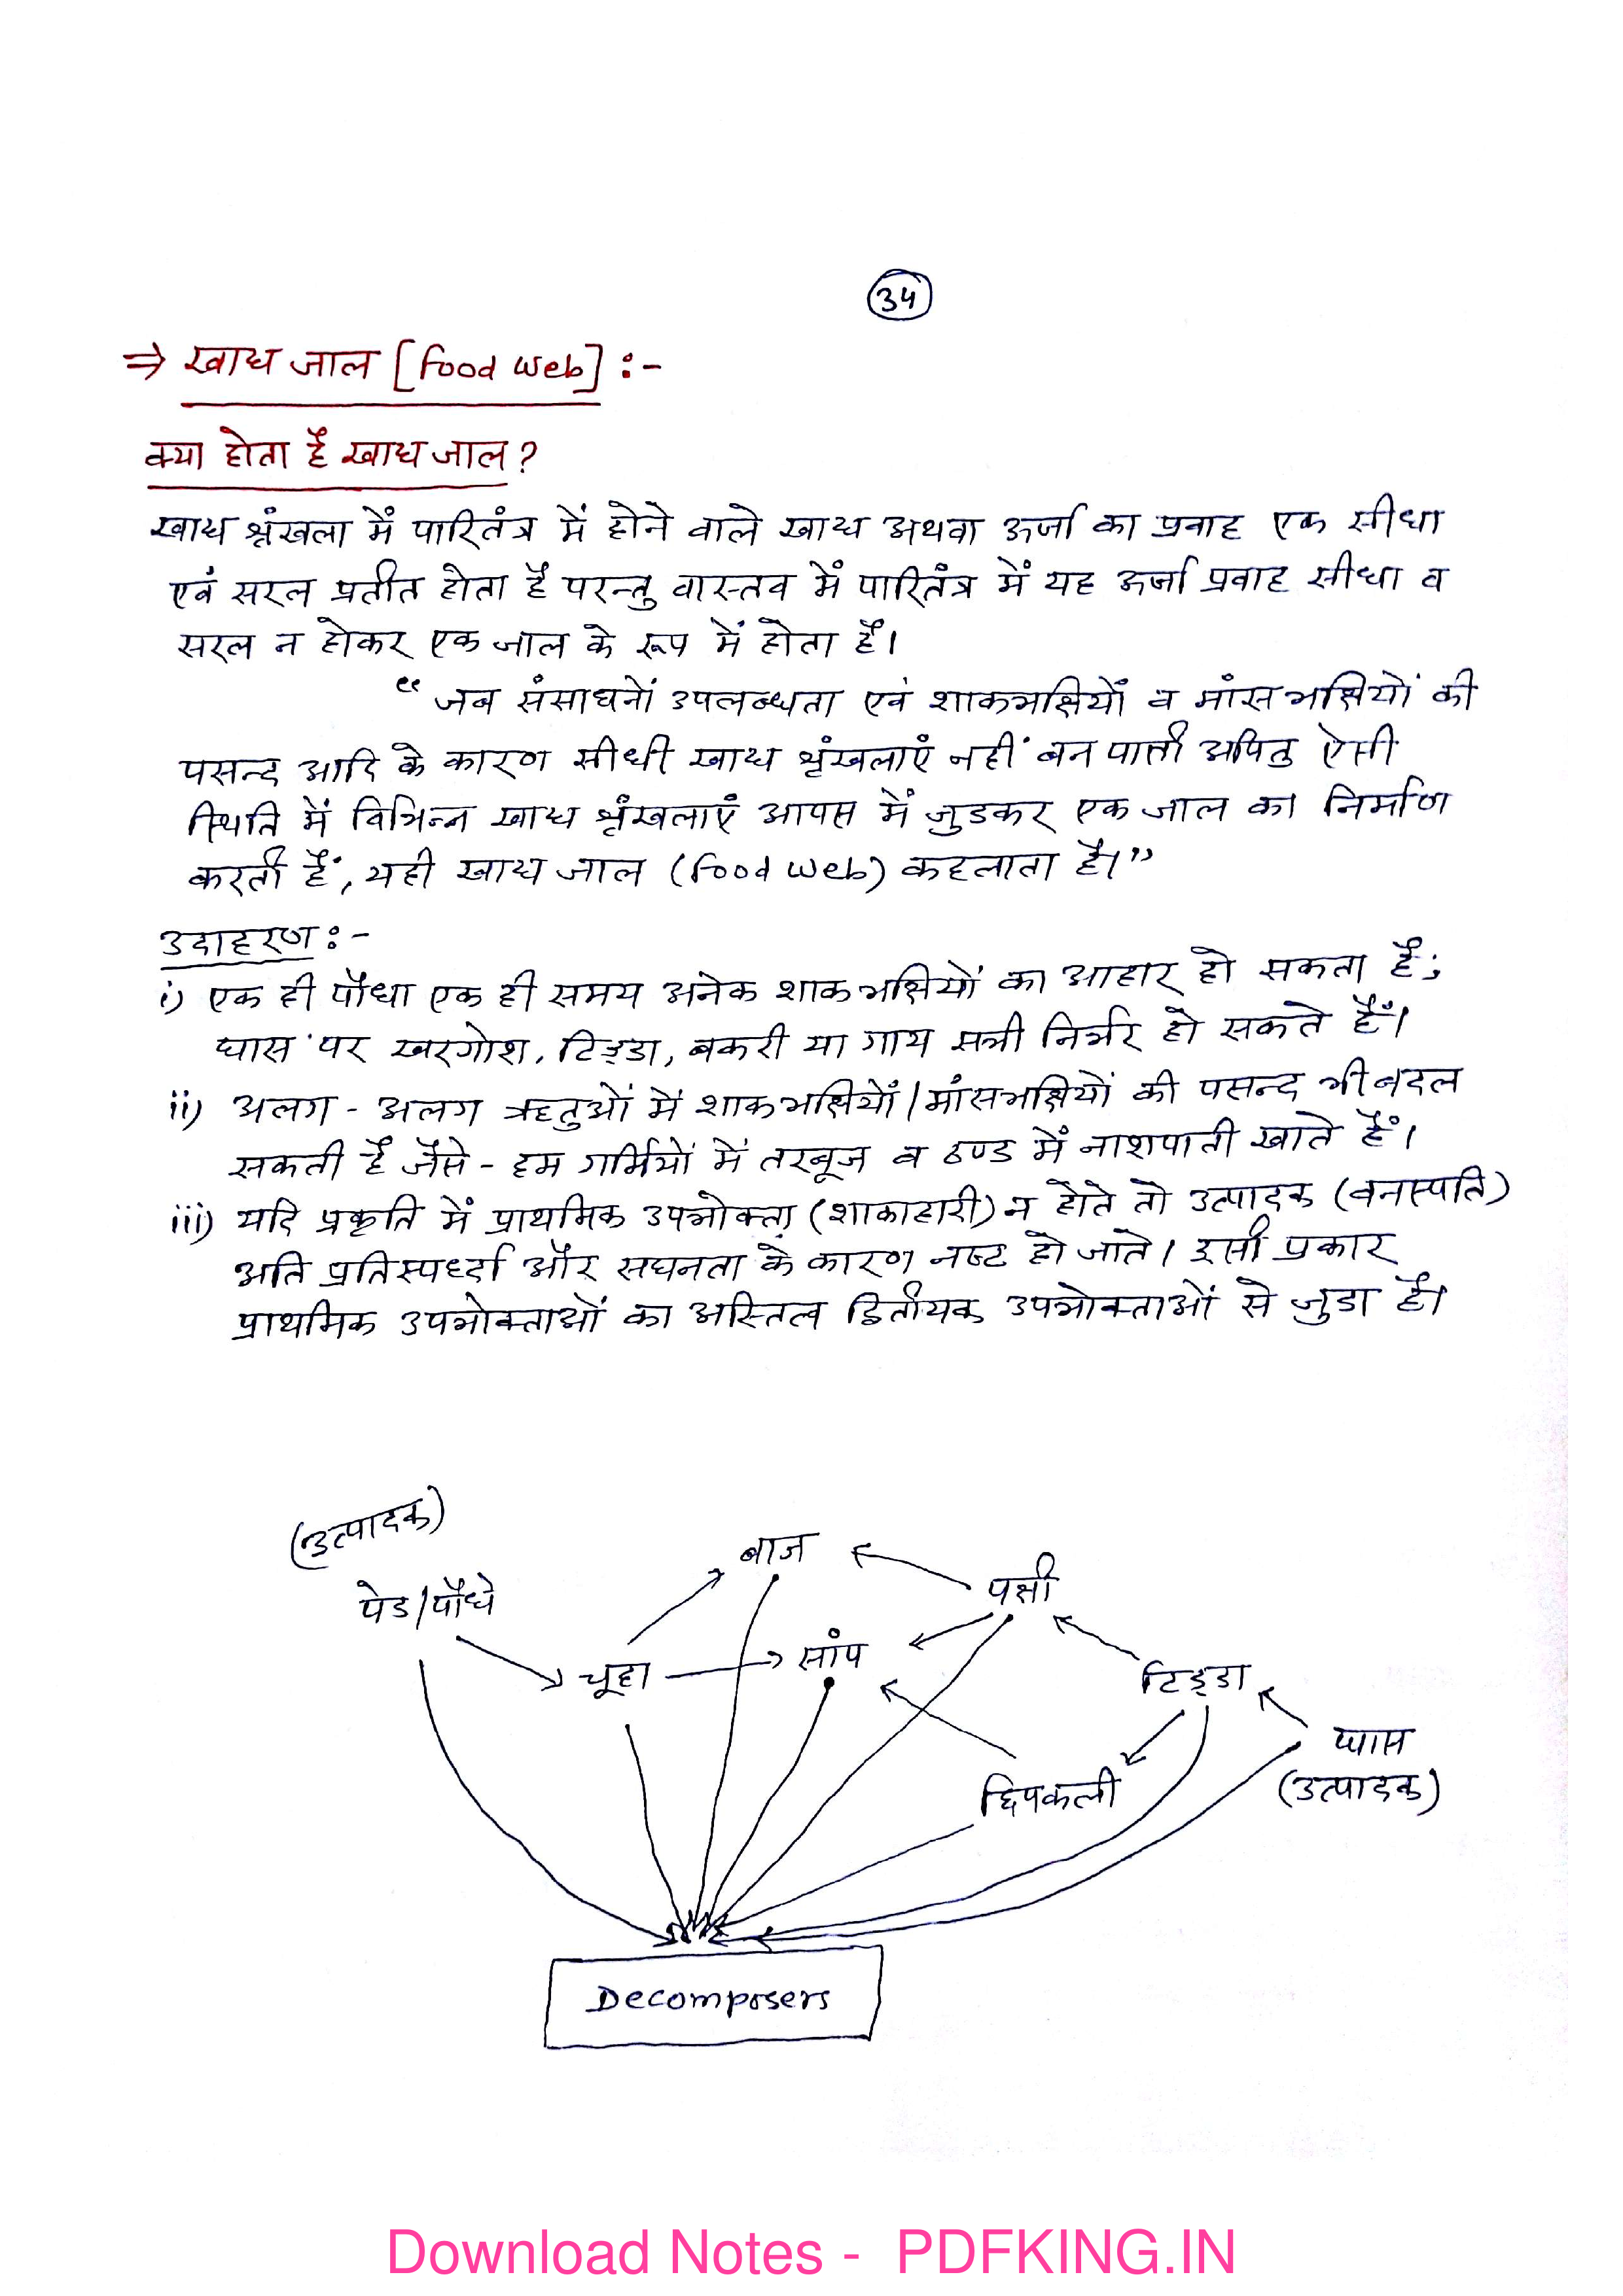 34
⇒ खाद्य जाल [Food Web] :-
क्या होता है खाद्य जाल ?
खाद्य श्रृंखला में पारितंत्र में होने वाले खाद्य अथवा ऊर्जा का प्रवाह एक सीधा
एवं सरल प्रतीत होता है परन्तु वास्तव में पारितंत्र में यह ऊर्जा प्रवाह सीधा व
सरल न होकर एक जाल के रूप में होता है।
“जब संसाधनों उपलब्धता एवं शाकभक्षियों व मांसभक्षियों की
पसन्द आदि के कारण सीधी खाद्य श्रृंखलाएं नहीं बन पाती अपितु ऐसी
स्थिति में विभिन्न खाद्य श्रृंखलाएं आपस में जुडकर एक जाल का निर्माण
करती हैं, यही खाद्य जाल (Food Web) कहलाता है।”
उदाहरण :-
i) एक ही पौधा एक ही समय अनेक शाकभक्षियों का आहार हो सकता है;
घास पर खरगोश, टिड्डा, बकरी या गाय सभी निर्भर हो सकते हैं।
ii) अलग - अलग ऋतुओं में शाकभक्षियों/मांसभक्षियों की पसन्द भी बदल
सकती है जैसे - हम गर्मियों में तरबूज व ठण्ड में नाशपाती खाते हैं।
iii) यदि प्रकृति में प्राथमिक उपभोक्ता (शाकाहारी) न होते तो उत्पादक (वनस्पति)
अति प्रतिस्पर्ध्दा और सघनता के कारण नष्ट हो जाते। इसी प्रकार
प्राथमिक उपभोक्ताओं का अस्तित्व द्वितीयक उपभोक्ताओं से जुडा है।
(उत्पादक)
पेड/पौधे
बाज
पक्षी
चूहा
सांप
टिड्डा
घास
(उत्पादक)
छिपकली
Decomposers
Download Notes - PDFKING.IN